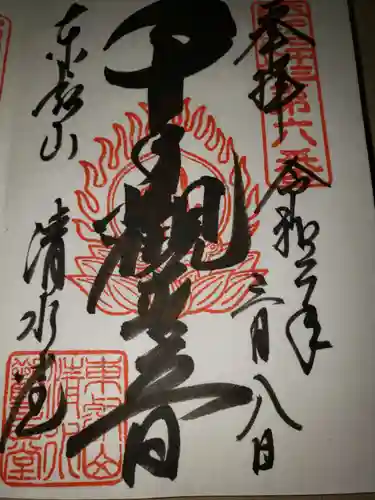 奉拝
第六番
令和二年
三月八日
千手觀世音
東叡山
清水堂
東叡山
清水
觀音堂